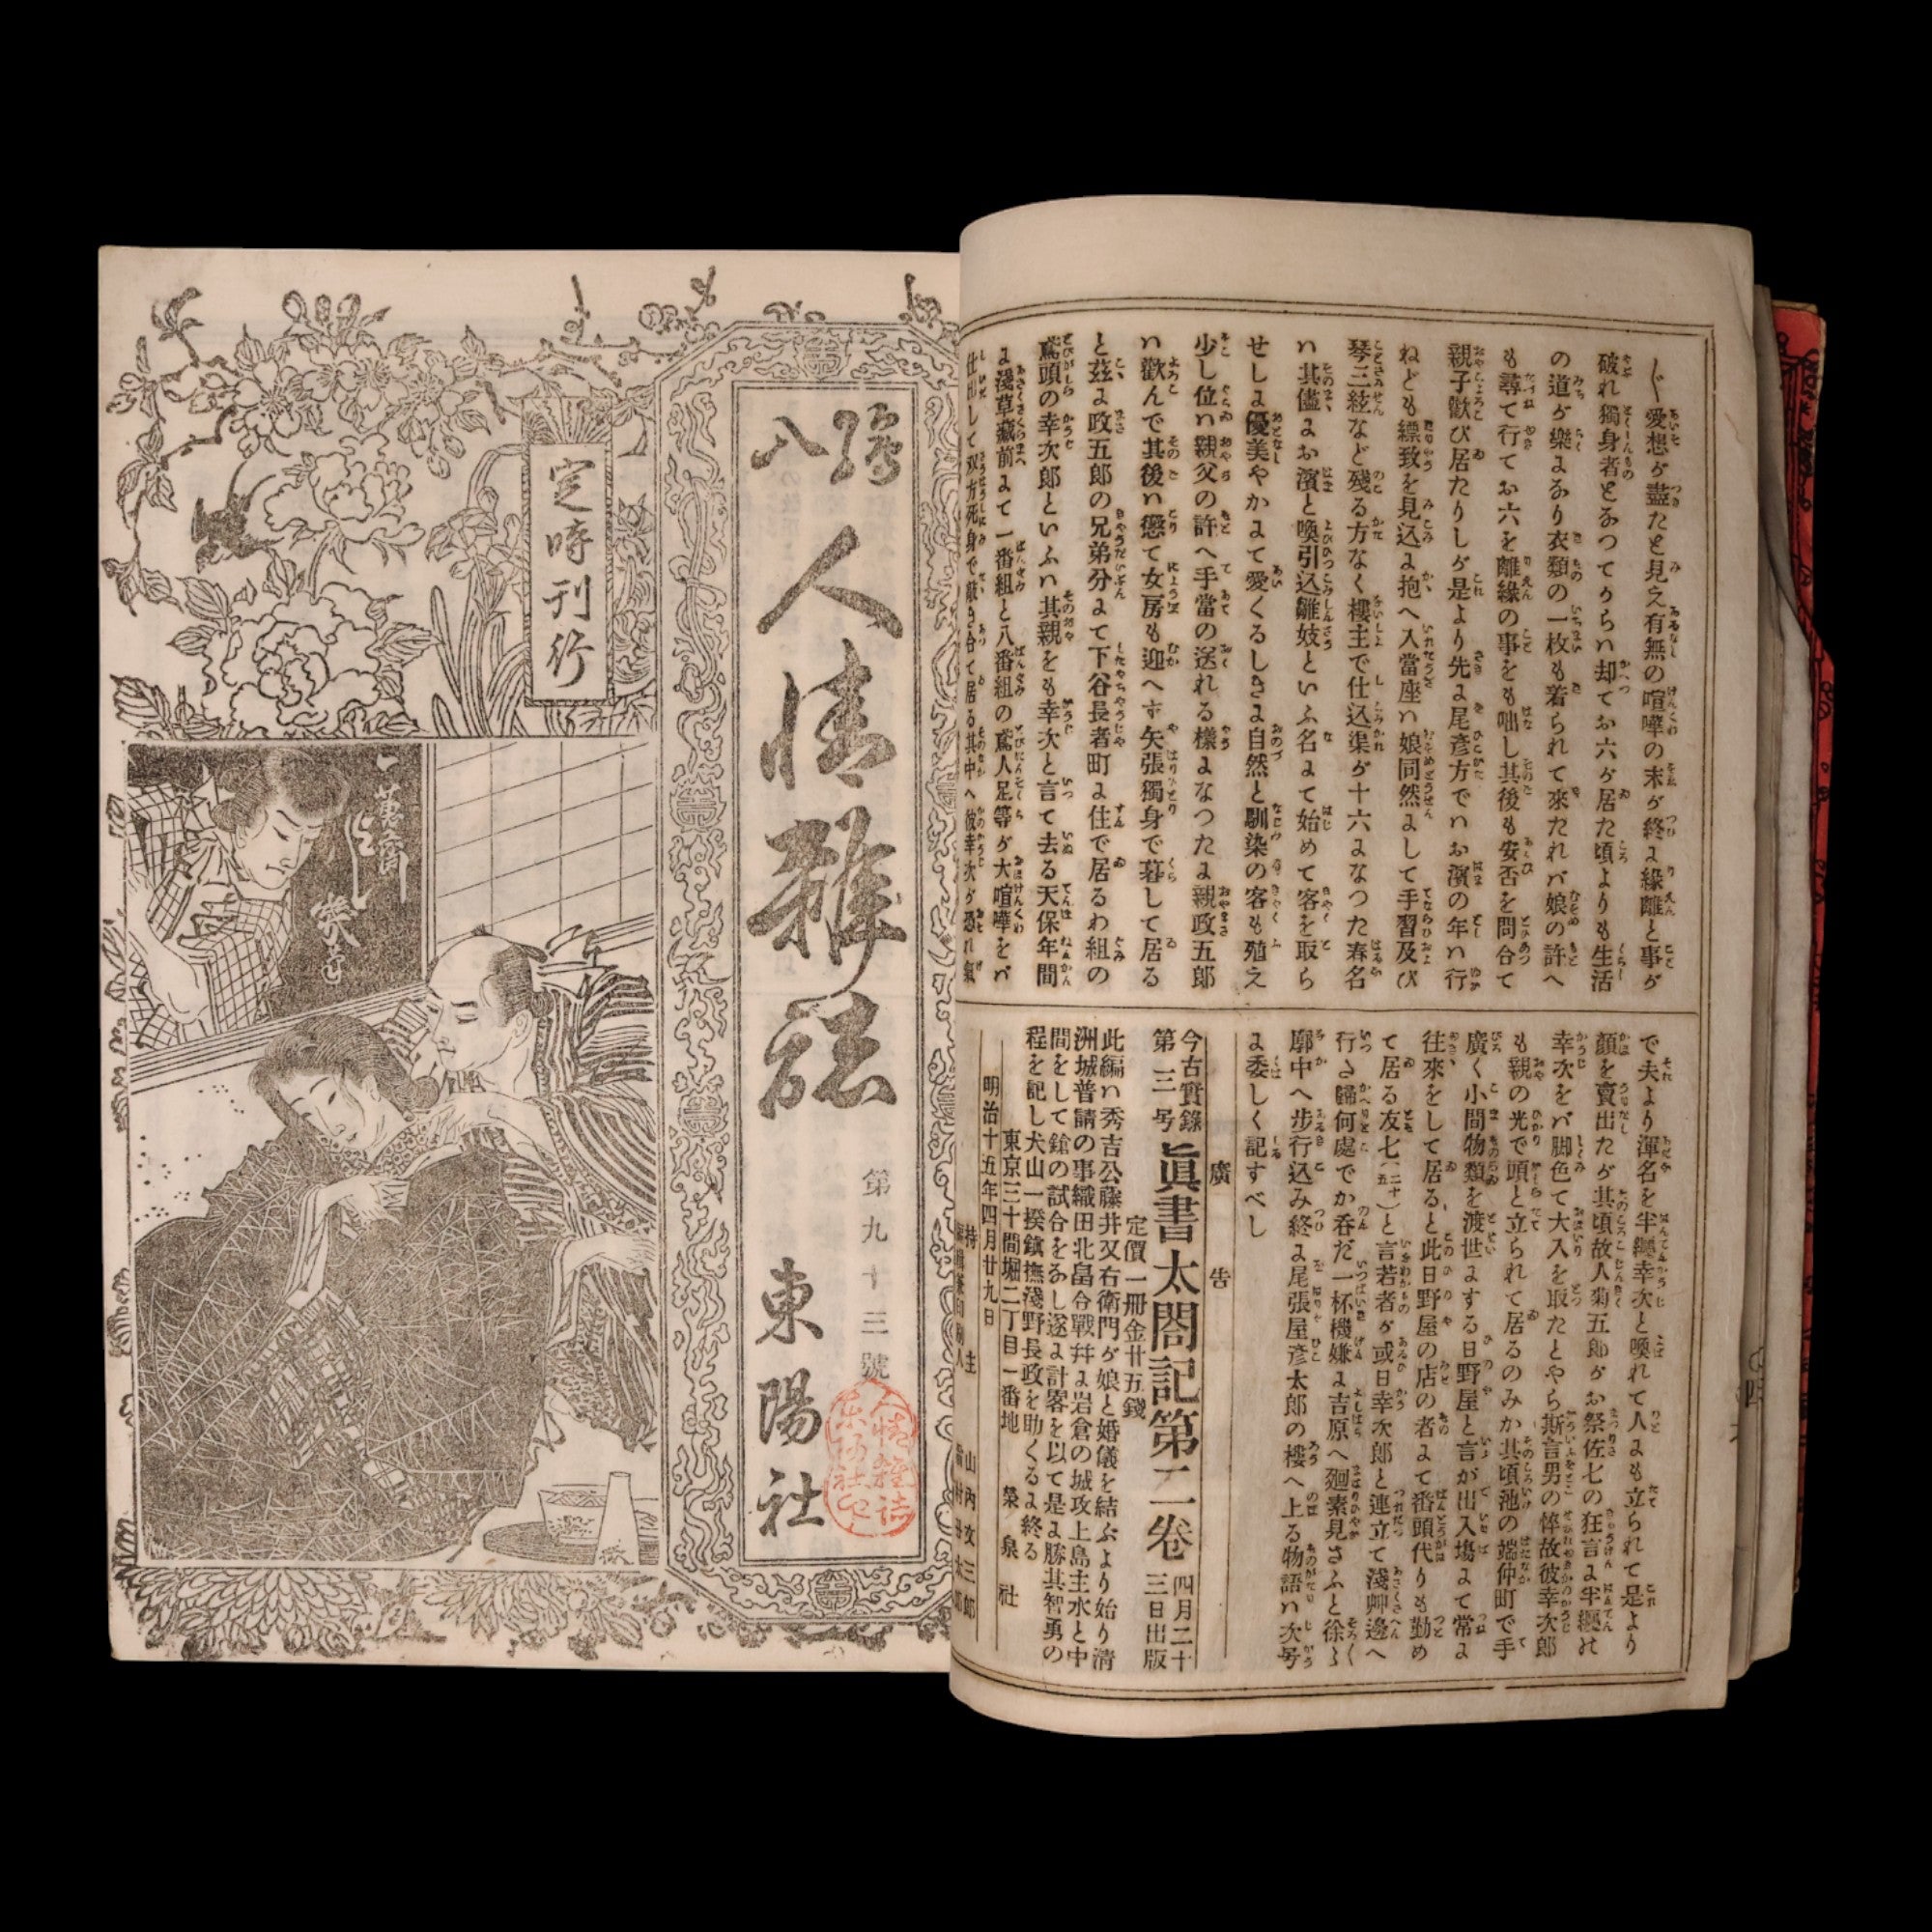 愛想が盡たと見え有無の喧嘩の末が終よ緣離と事が
破れ獨身者となつてからハ却てお六が居た頃よりも生活
の道が樂よなり衣類の一枚も着られて來たれバ娘の許へ
も尋て行てお六を離緣の事をも咄し其後も安否を問合て
親子歡び居たりしが是より先よ尾彦方でハお濱の年ハ行
ねども縹致を見込よ抱へ入當座ハ娘同然よして手習及び
琴三絃など殘る方なく樓主で仕込渠が十六よなつた春名
ハ其儘よお濱と喚引込雛妓といふ名よて始めて客を取ら
せしよ優美やかよて愛くるしきよ自然と馴染の客も殖え
少し位ハ親父の許へ手當の送れる樣よなつたよ親政五郎
ハ歡んで其後ハ懲て女房も迎へず矢張獨身で暮して居る
と茲よ政五郎の兄弟分よて下谷長者町よ住で居るわ組の
鳶頭の幸次郎といふハ其親をも幸次と言て去る天保年間
よ淺草藏前よて一番組と八番組の鳶人足等が大喧嘩をバ
仕出して双方死身で

で夫より渾名を半纒幸次と喚れて人よも立られて是より
顔を賣出たが其頃故人菊五郎がお祭佐七の狂言よ半纒の
幸次をバ脚色て大入を取たとやら斯言男の悴故彼幸次郎
も親の光で頭と立られて居るのみか其頃池の端仲町で手
廣く小間物類を渡世よする日野屋と言が出入塲よて常よ
往來をして居ると此日野屋の店の者よて番頭代りも勤め
て居る友七(二十五)と言若者が或日幸次郎と連立て淺艸邊へ
行さ歸何處でか呑だ一杯機嫌よ吉原へ廻素見さふと徐〻
廓中へ步行込み終よ尾張屋彦太郎の樓へ上る物語ハ次号
よ委しく記すべし
廣告
今古實錄
第三号
眞書太閤記第二卷
四月二十
三日出版
定價一冊金廿五錢
此編ハ秀吉公藤井又右衛門が娘と婚儀を結ぶより始り淸
洲城普請の事織田北畠合戰幷よ岩倉の城攻上島主水と中
間をして鎗の試合をなし遂よ計畧を以て是よ勝其智勇の
程を記し犬山一揆鎭撫淺野長政を助くるよ終る
東京三十間堀二丁目一番地 榮泉社
明治十五年四月廿九日
持主 山内文三郎

人情雜誌
第九十三號
東陽社
人情雜誌
東陽社印
定時刊行